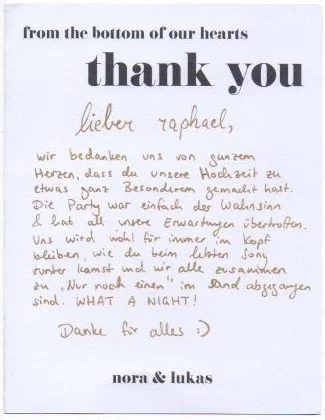 from the bottom of our hearts
thank you
lieber raphael,
wir bedanken uns von ganzem
Herzen, dass du unsere Hochzeit zu
etwas ganz Besonderem gemacht hast.
Die Party war einfach der Wahnsinn
& hat all unsere Erwartungen übertroffen.
Uns wird wohl für immer im Kopf
bleiben, wie du beim letzten Song
runter kamst und wir alle zusammen
zu „Nur noch einen" im Sand abgegangen
sind. WHAT A NIGHT!
Danke für alles :)
nora & lukas